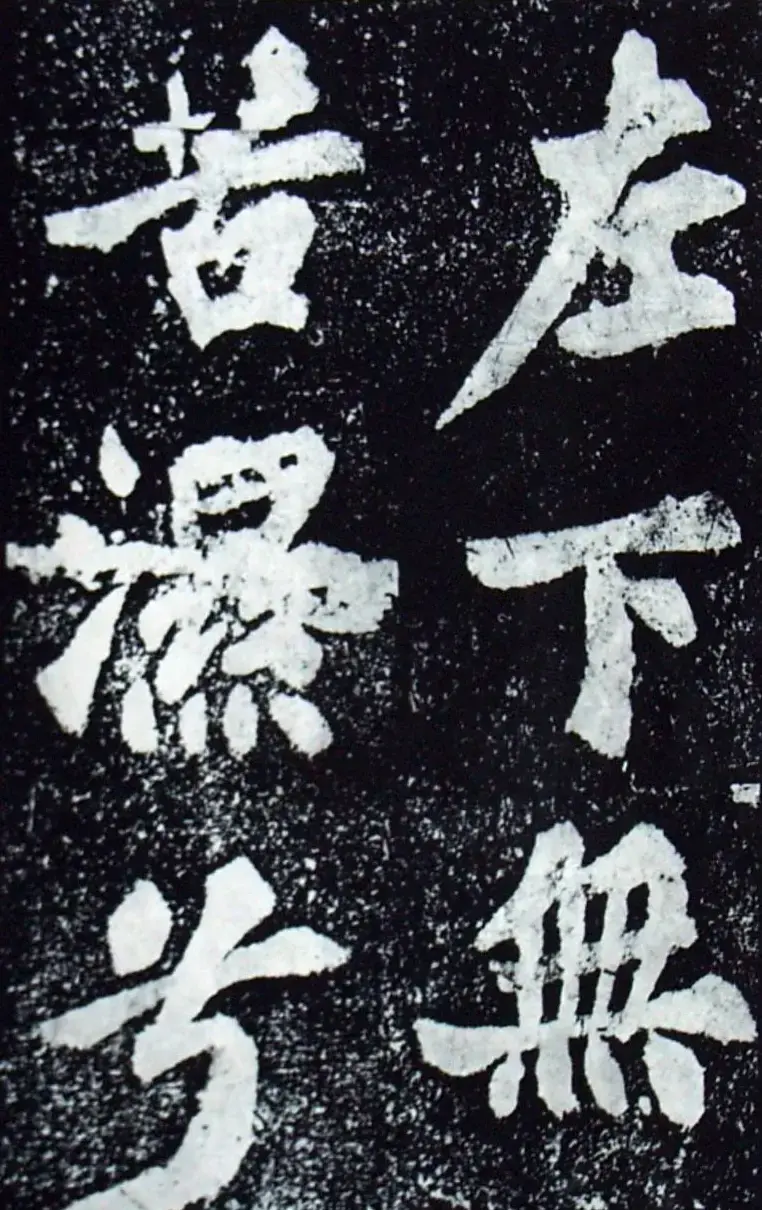 左下無
苦濕兮